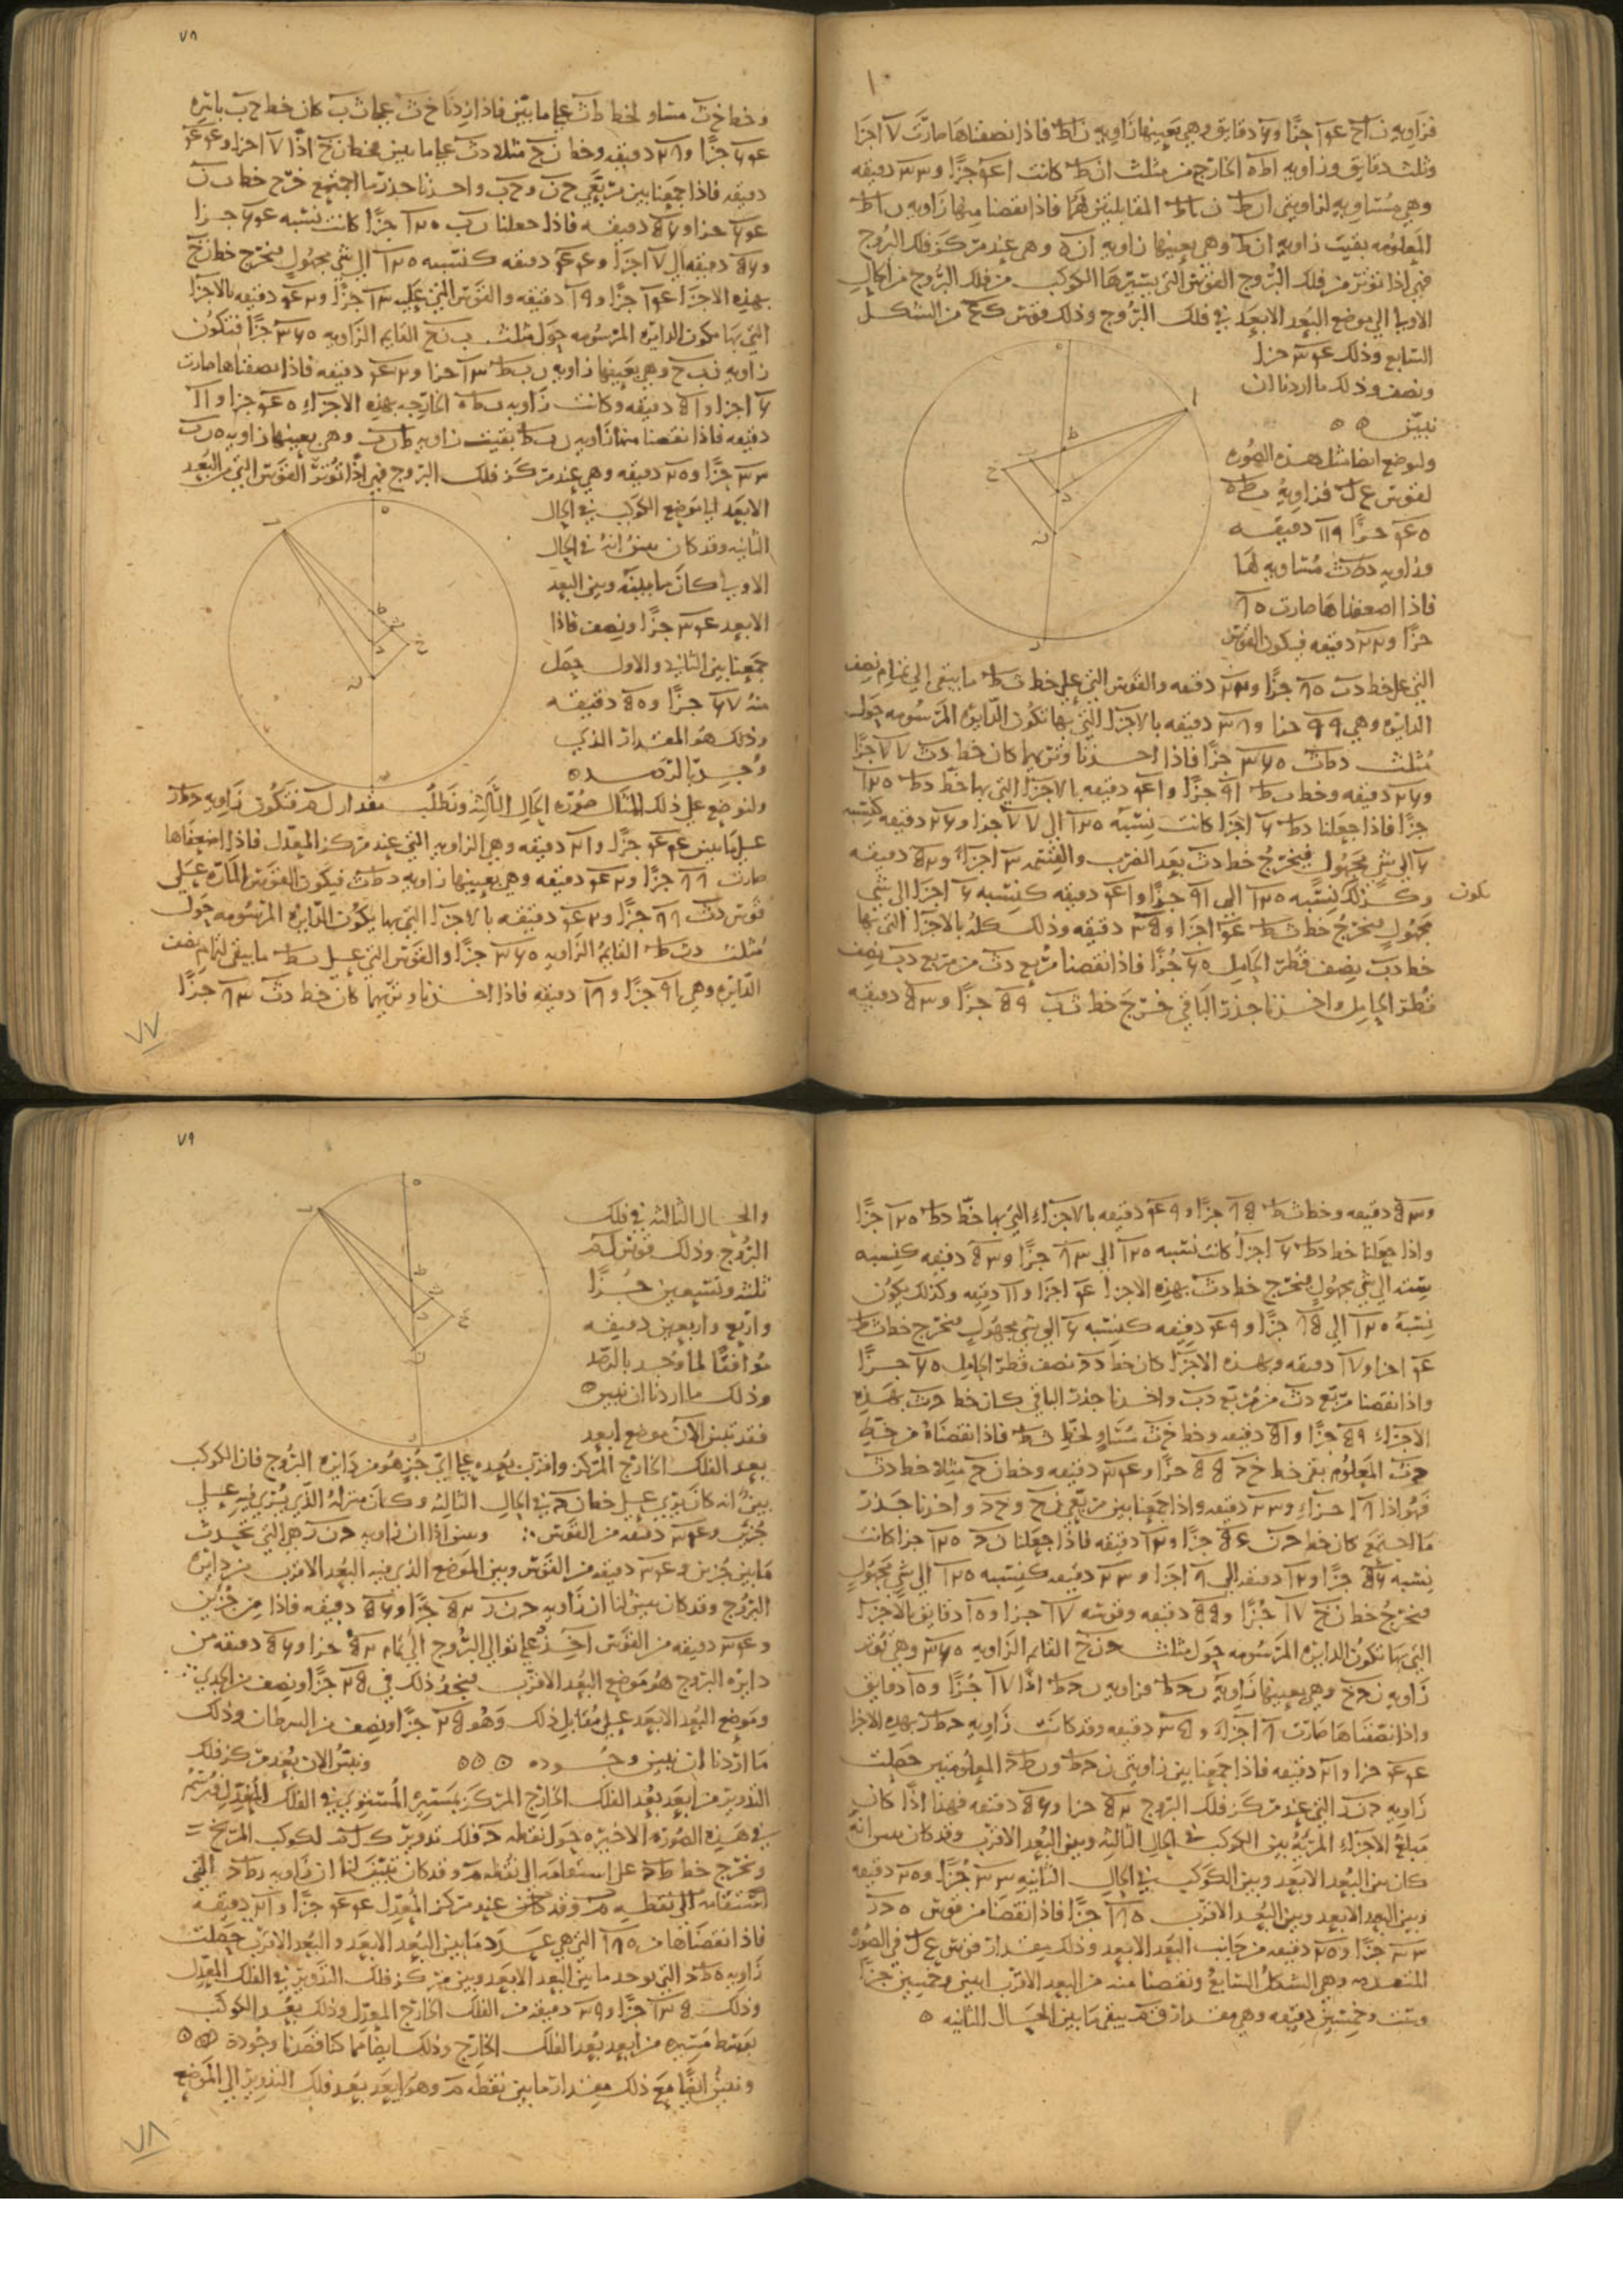 فزاويه ن ا ح ١٤ جزًا و٦ دقايق وهي بعينها زاويه ن ا ط فاذا نصفناها صارت ٧ اجزا
وثلث دقايق وزاويه ا ط ه الخارجه من مثلث ا ن ط كانت ٤١ جزًا و٣٣ دقيقه
وهي مساويه لزاويتي ا ن ط ن ا ط المقابلتين لها فاذا نقصنا منها زاويه ن ا ط
المعلومه بقيت زاويه ا ن ط وهي بعينها زاويه ا ن ه وهي عند مركز فلك البروج
فهي اذا توتر من فلك البروج القوس التي يسيرها الكوكب من فلك البروج من الحال
الاولى الي موضع البعد الابعد في فلك البروج وذلك قوس من الشكل
السابع وذلك ٣٤ جزا
ونصف وذلك ما اردنا ان
نبيّن ٥ ٥
ولنوضع ايضا مثل هذه الصوره
لقوس ع ل فزاويه ب ط ه
٤٠ جزًا ١١ دقيقه
وزاويه د ط ث مساويه لها
فاذا اضعفناها صارت ٨٠
جزًا و٢٢ دقيقه فيكون القوس
التي على خط د ث ٨٠ جزًا و٢٢ دقيقه والقوس التي على خط ث ط ما يبقى الي تمام نصف
الدايره وهي ٩٩ جزا و٣٨ دقيقه بالاجزا التي بها تكون الدايره المرسومه حول
مثلث د ط ث ٣٦٠ جزًا فاذا اخذنا وتريهما كان خط د ث ٧٧ جزًا
و٢٦ دقيقه وخط ث ط ٩١ جزًا و٤١ دقيقه بالاجزا التي بها خط د ط ١٢٠
جزًا فاذا جعلنا د ط ٦ اجزا كانت نسبة ١٢٠ الي ٧٧ جزا و٢٦ دقيقه كنسبه
٦ الي شي مجهول فيخرج خط د ث بعد الضرب والقسمه ٣ اجزاء و٥٢ دقيقه
وكذلك نسبه ١٢٠ الي ٩١ جزًا و٤١ دقيقه كنسبه ٦ اجزا الي شي تكون
مجهول فيخرج خط ث ط ٤ اجزا و٣٥ دقيقه وذلك كله بالاجزا التي بها
خط د ب نصف قطر الحامل ٦٠ جزًا فاذا نقصنا مربع د ث من مربع د ب نصف
قطر الحامل واخذنا جذر الباقي خرج خط ث ب ٥٩ جزًا و٥٣ دقيقه
وخط خ ث مساو لخط ط ث علي ما بيّن فاذا زدنا خ ث على ث ب كان خط خ ب باسره
٦٤ جزًا و٢٨ دقيقه وخط ن خ مثلا د ث علي ما بين فخط ن خ اذًا ٧ اجزا و٤٤
دقيقه فاذا جمعنا بين مربعي خ ن وخ ب واخذنا جذر ما اجتمع خرج خط ب ن
٦٤ جزا و٥٦ دقيقه فاذا جعلنا ن ب ١٢٠ جزًا كانت نسبه ٦٤ جزا
و٥٦ دقيقه الي ٧ اجزا و٤٤ دقيقه كنسبه ١٢٠ الي شي مجهول فيخرج خط ن خ
بهذه الاجزا ١٤ جزًا و١٩ دقيقه والقوس التي عليه ١٣ جزًا و٤٢ دقيقه بالاجزا
التي بها تكون الدايره المرسومه حول مثلث ب ن خ القايم الزاويه ٣٦٠ جزًا فتكون
زاويه ن ب خ وهي بعينها زاويه ن ب ط ١٣ جزا و٤٢ دقيقه فاذا نصفناها صارت
٦ اجزا و٥١ دقيقه وكانت زاويه ب ط ه الخارجه بهذه الاجزاء ٤٠ جزا و١١
دقيقه فاذا نقصنا منها زاويه ن ب ط بقيت زاويه ط ن ب وهي بعينها زاويه ه ن ب
٣٣ جزًا و٢٠ دقيقه وهي عند مركز فلك البروج فهي اذًا توتر القوس التي من البعد
الابعد الي موضع الكوكب في الحال
الثانيه وقد كان تبين انه في الحال
الاولى كان ما بينه وبين البعد
الابعد ٣٤ جزًا ونصف فاذا
جمعنا بين الثاني والاول حصل
منه ٦٧ جزًا و٥٠ دقيقه
وذلك هو المقدار الذي
وُجد بالرصد ٥
ولنوضع علي ذلك المثال صوره الحال الثالثه ونطلب مقدار ل م فتكون زاويه
علي ما تبين ٤٤ جزًا و٢١ دقيقه وهي الزاويه التي عند مركز المعدل فاذا اضعفناها
صارت ٨٨ جزًا و٤٢ دقيقه وهي بعينها زاويه د ط ث فيكون القوس الماره علي
قوس د ث ٨٨ جزًا و٤٢ دقيقه بالاجزا التي بها يكون الدايره المرسومه حول
مثلث د ث ط القايم الزاويه ٣٦٠ جزًا والقوس التي على ث ط ما يبقى لتمام نصف
الدايره وهي ٩١ جزًا و١٨ دقيقه فاذا اخذنا وتريهما كان خط د ث ٨٣ جزًا
و٥٣ دقيقه وخط ث ط ٨٥ جزًا و٤٩ دقيقه بالاجزاء التي بها خط د ط ١٢٠ جزًا
واذا جعلنا خط د ط ٦ اجزا كانت نسبه ١٢٠ الي ٨٣ جزًا و٥٣ دقيقه كنسبه
سته الي شي مجهول فيخرج خط د ث بهذه الاجزا ٤ اجزا و١١ دقيقه وكذلك يكون
نسبة ١٢٠ الي ٨٥ جزًا و٤٩ دقيقه كنسبه ٦ الي شي مجهول فيخرج خط ث ط
٤ اجزا و١٧ دقيقه وبهذه الاجزا كان خط د ح نصف قطر الحامل ٦٠ جزًا
واذا نقصنا مربع د ث من مربع د ب واخذنا جذر الباقي كان خط ح ث بهذه
الاجزاء ٥٩ جزًا و٥١ دقيقه وخط خ ث مساو لخط ث ط فاذا نقصناه من خط
ح ث المعلوم بقي خط خ ح ٥٥ جزًا و٣٤ دقيقه وخط ن خ مثلا خط د ث
فهو اذا ٨ اجزاء و٢٢ دقيقه واذا جمعنا بين مربعي ن خ وخ ح واخذنا جذر
ما اجتمع كان خط ح ن ٥٦ جزًا و١٢ دقيقه فاذا جعلنا ن ح ١٢٠ جزا كانت
نسبه ٥٦ جزًا و١٢ دقيقه الي ٨ اجزا و٢٣ دقيقه كنسبه ١٢٠ الي شي مجهول
فيخرج خط ن خ ١٧ جزًا و٥٥ دقيقه وقوسه ١٧ جزا و١٠ دقايق بالاجزا
التي بها تكون الدايره المرسومه حول مثلث ح ن خ القايم الزاويه ٣٦٠ وهي توتر
زاويه ن ح خ وهي بعينها زاوية ن ح ط فزاويه ن ح ط اذًا ١٧ جزًا و١٠ دقايق
واذا نصفناها صارت ٨ اجزاء و٣٥ دقيقه وقد كانت زاويه ح ط د بهذه الاجزا
٤٤ جزا و٢١ دقيقه فاذا جمعنا بين زاويتي ن ح ط ون ط ح المعلومتين حصلت
زاويه ح ن د التي عند مركز فلك البروج ٥٢ جزا و٥٦ دقيقه فهذا اذًا كان
مبلغ الاجزاء المرئية بين الكوكب في الحال الثالثه وبين البعد الاقرب وقد كان تبين انه
كان بين البعد الابعد وبين الكوكب في الحال الثانيه ٣٣ جزًا و٢٠ دقيقه
وبين البعد الابعد وبين البعد الاقرب ١٨٠ جزًا فاذا نقصنا من قوس ه ح د
٣٣ جزًا و٢٠ دقيقه من جانب البعد الابعد وذلك مقدار قوس ع ل في الصوره
المتقدمه وهي الشكل السابع ونقصنا منه من البعد الاقرب اثنين وخمسين جزًا
وستت وخمسين دقيقه وهي مقدار ق م يبقى ما بين الحال الثانيه ٥
والحال الثالثه في فلك
البروج وذلك قوس ل م
ثلثه وتسعين جزًا
واربع واربعين دقيقه
موافقًا لما وجد بالرصد
وذلك ما اردنا ان نبين ٥
فقد تبين الان موضع ابعد
بعد الفلك الخارج المركز واقرب بعده علي ايّ جز هو من دايره البروج فان الكوكب
بيّن انه كان يرى علي خط ن ح في الحال الثالثه وكان منزله الذي يُرى فيه علي
جزئين و٣٤ دقيقه من القوس ∴ وبين اذا ان زاويه ح ن د هي التي تحدث
ما بين جزئين و٣٤ دقيقه من القوس وبين الموضع الذي فيه البعد الاقرب من دايره
البروج وقد كان تبين لنا ان زاويه ح ن د ٥٢ جزًا و٥٦ دقيقه فاذا من جزئين
و٣٤ دقيقه من القوس اُخِذ علي توالي البروج الي تمام ٥٢ جزا و٥٦ دقيقه من
دايره البروج هو موضع البعد الاقرب فيجوز ذلك في ٢٥ جزًا ونصف من الجدي ∴
وموضع البعد الابعد علي مقابل ذلك وهو ٢٥ جزًا ونصف من السرطان وذلك
ما اردنا ان نبين وجوده ٥ ٥ ٥ ونبيّن الان بعد مركز فلك
التدوير من ابعد بعد الفلك الخارج المركز بمسيره المستوي في الفلك المعدل فنرسم
في هذه الصوره الاخيره حول نقطه ح فلك تدوير ك ل م لكوكب المريخ
ونخرج خط ط ح علي استقامه الي نقطه م وقد كان تبين لنا ان زاويه د ط ح التي
استقامه الي نقطه م وقد كانت عند مركز المعدل ٤٤ جزًا و٢١ دقيقه
فاذا نقصناها من ١٨٠ التي هي عدد ما بين البعد الابعد والبعد الاقرب حصلت
زاويه ه ط ح التي توجد ما بين البعد الابعد وبين مركز فلك التدوير في الفلك المعدل
وذلك ١٣٥ جزًا و٣٩ دقيقه من الفلك الخارج المعدل وذلك بعد الكوكب
بوسط مسيره من ابعد بعد الفلك الخارج وذلك ايضا مما كنا قصدنا وجوده ٥ ٥ ٥
ونبين ايضًا مع ذلك مقدار ما بين نقطه م وهو ابعد بعد فلك التدوير الي الموضع
١٠
٧٨
٧٧
٧٩
٧٨